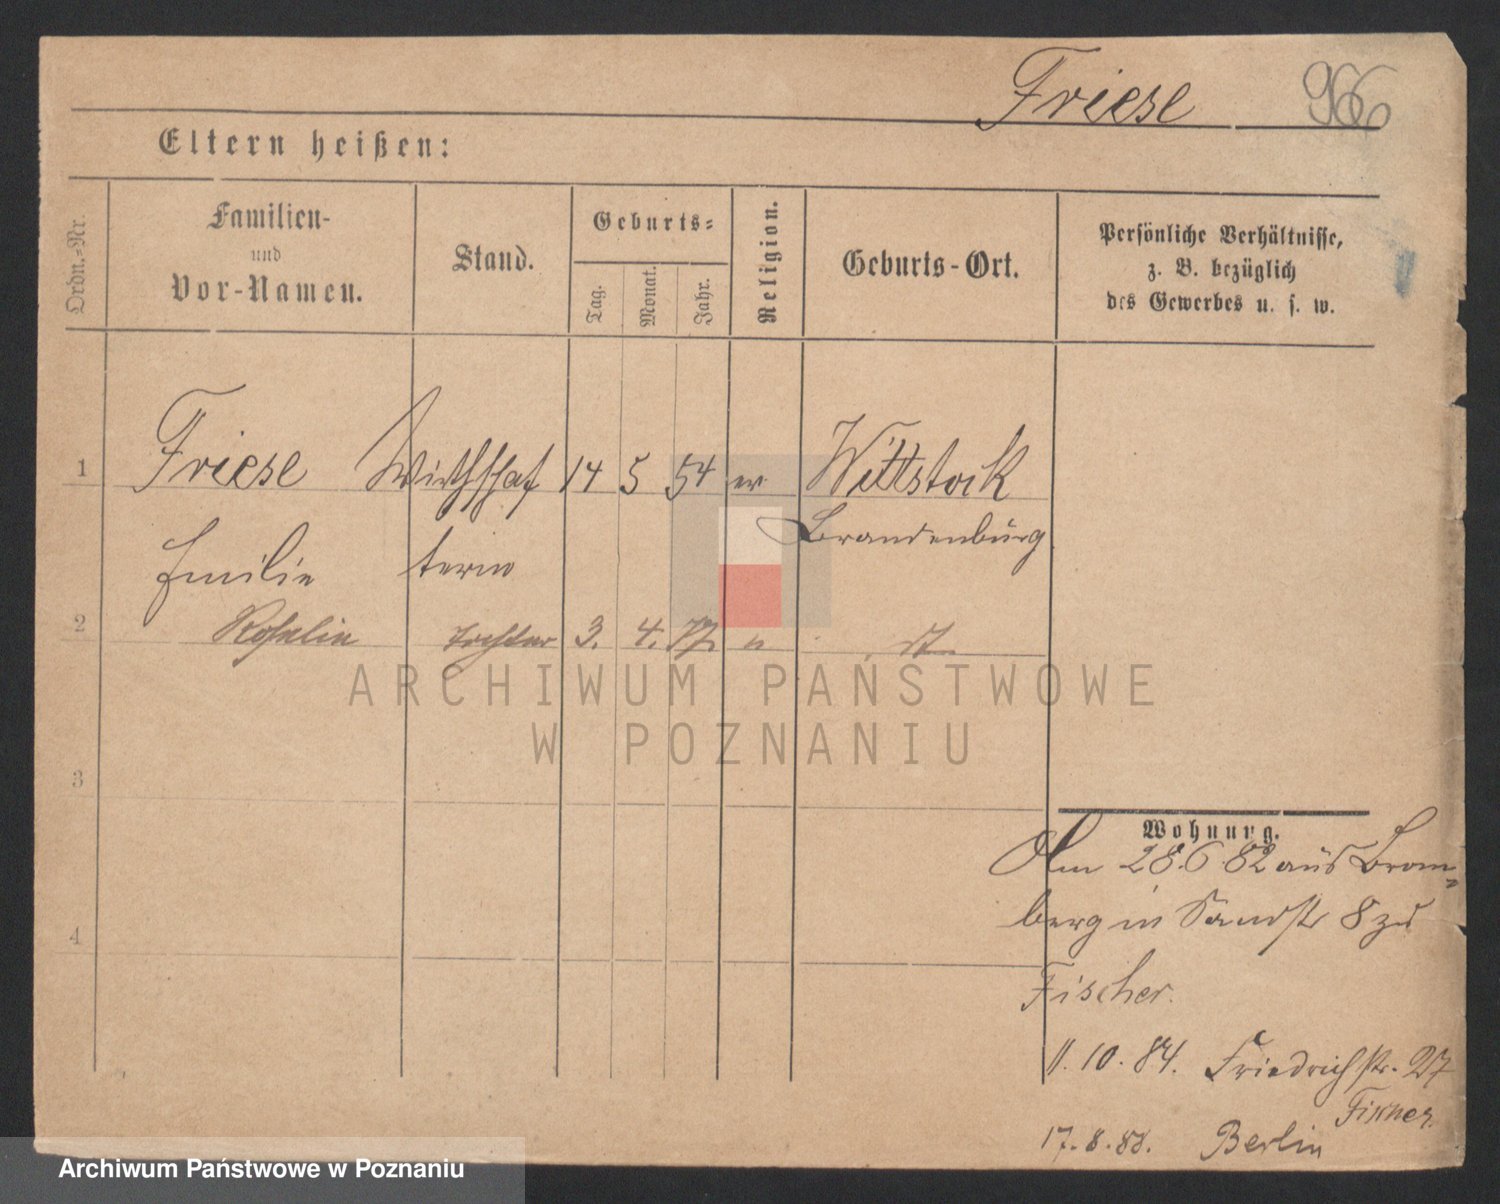 Friese 966
Eltern heißen:
Ordn.-Nr.
Familien-
und
Vor-Namen.
Stand.
Geburts-
Tag.
Monat.
Jahr.
Religion.
Geburts-Ort.
Persönliche Verhältnisse,
z. B. bezüglich
des Gewerbes u. s. w.
1 Friese Wirthschaf 14 5 54 ev Wittstock
Brandenburg
Emilie terin
2 Tochter 3. 4. 77. "
ARCHIWUM PAŃSTWOWE
W POZNANIU
3
Wohnung.
Am 28.6 82 aus Brom-
berg in Sandstr 8 zu
4
Fischer.
11. 10. 84. Friedrichstr. 27
17. 8. 88. Berlin
Archiwum Państwowe w Poznaniu